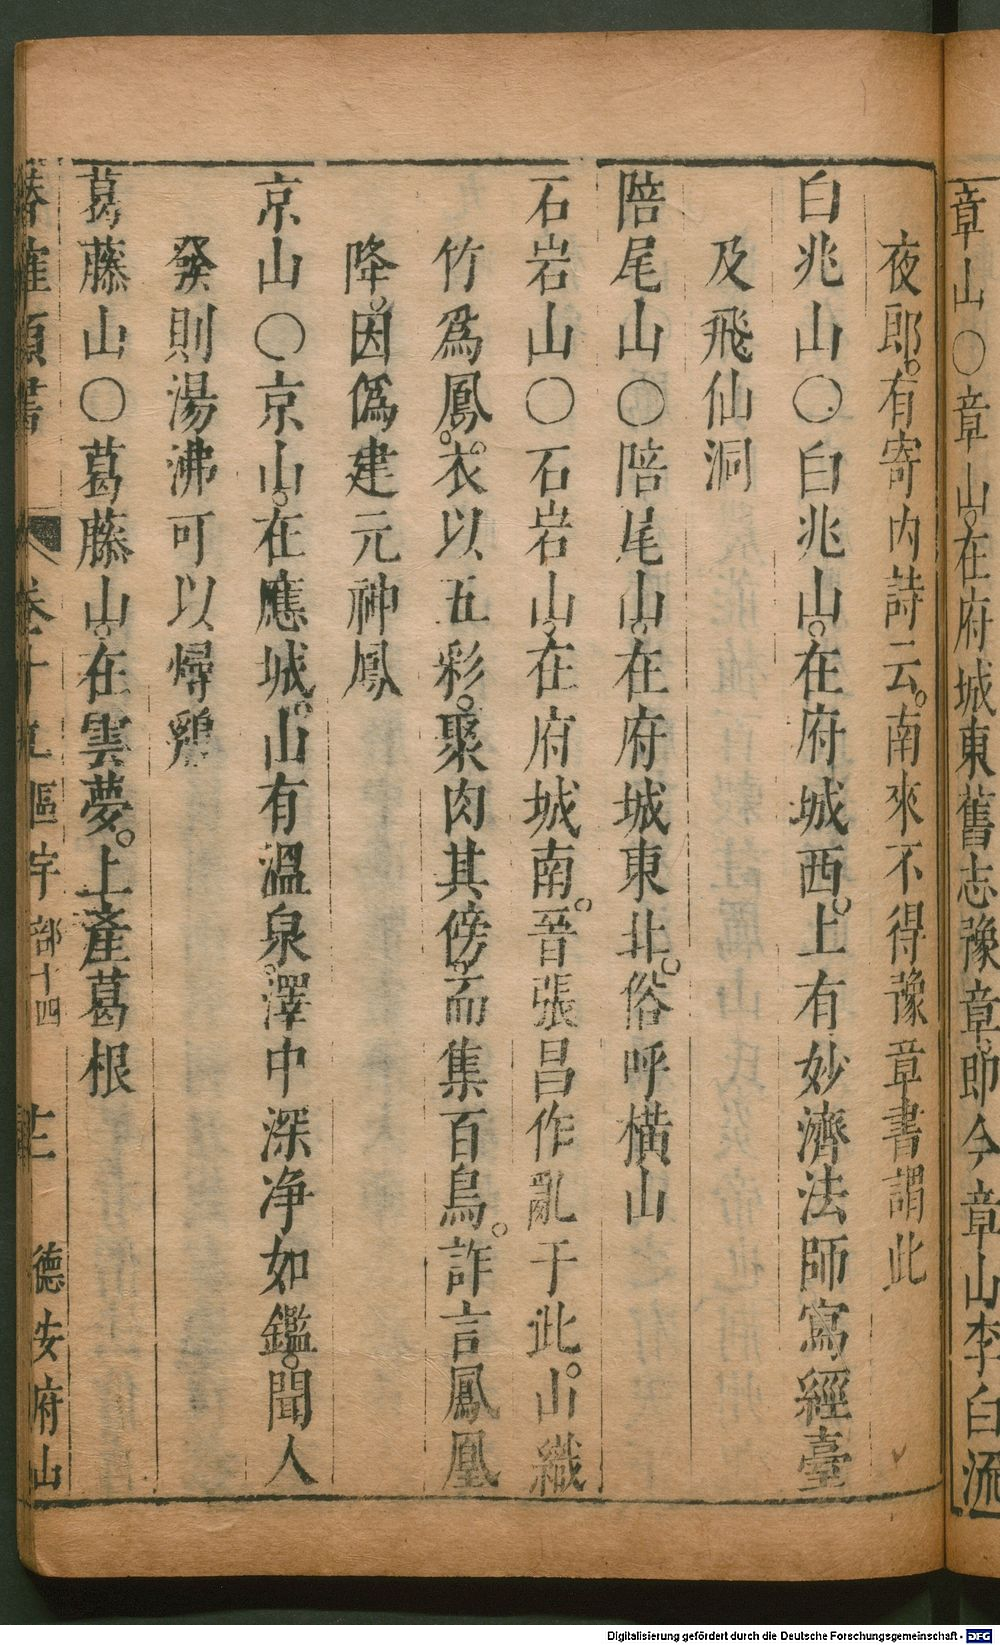 章山○章山在府城東舊志豫章卽今章山李白流
夜郎有寄内詩云南來不得豫章書謂此
白兆山○白兆山在府城西上有妙濟法師寫經臺
及飛仙洞
陪尾山○陪尾山在府城東北俗呼橫山
石岩山○石岩山在府城南晉張昌作亂于此山織
竹爲鳳衣以五彩聚肉其傍而集百鳥詐言鳳凰
降因僞建元神鳳
京山○京山在應城山有溫泉澤中深净如鑑聞人
發則湯沸可以燖雞
葛藤山○葛藤山在雲夢上產葛根
卷十九區宇部十四 德安府山
Digitalisierung gefördert durch die Deutsche Forschungsgemeinschaft - DFG